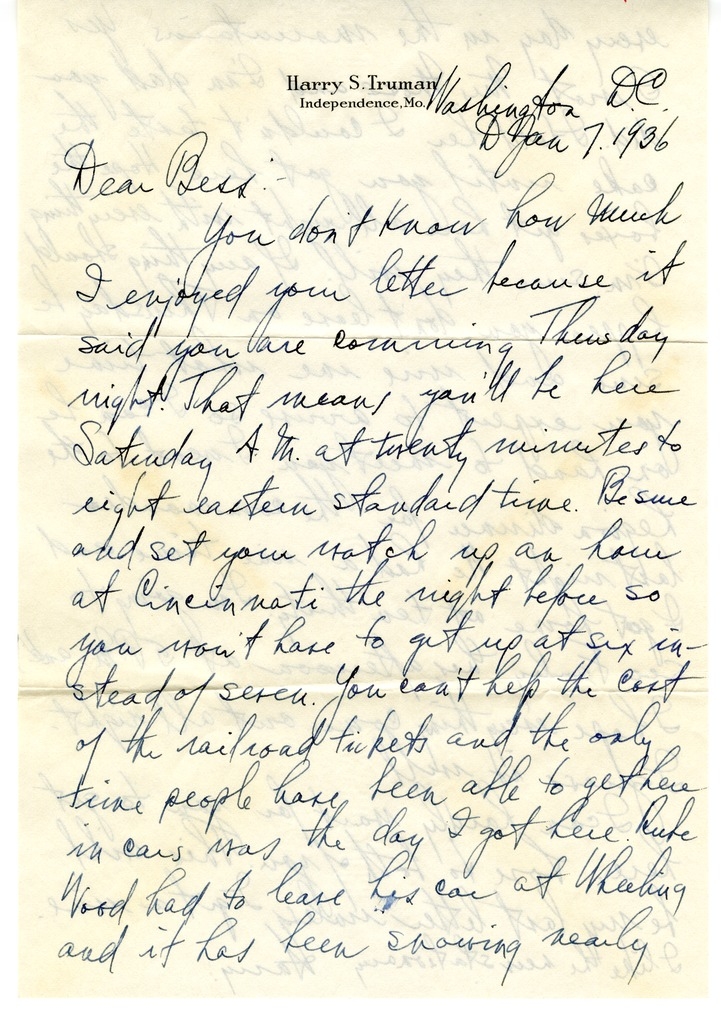 Harry S. Truman
Independence, Mo.
Washington D.C.
Jan 7, 1936
Dear Bess:-
You don't know how much
I enjoyed your letter because it
said you are comming Thursday
night. That means you'll be here
Saturday A.M. at twenty minutes to
eight eastern standard time. Be sure
and set your watch up an hour
at Cincinnati the night before so
you won't have to get up at six in-
stead of seven. You can't help the cost
of the railroad tickets and the only
time people have been able to get here
in cars was the day I got here. Rube
Wood had to leave his car at Wheeling
and it has been snowing nearly